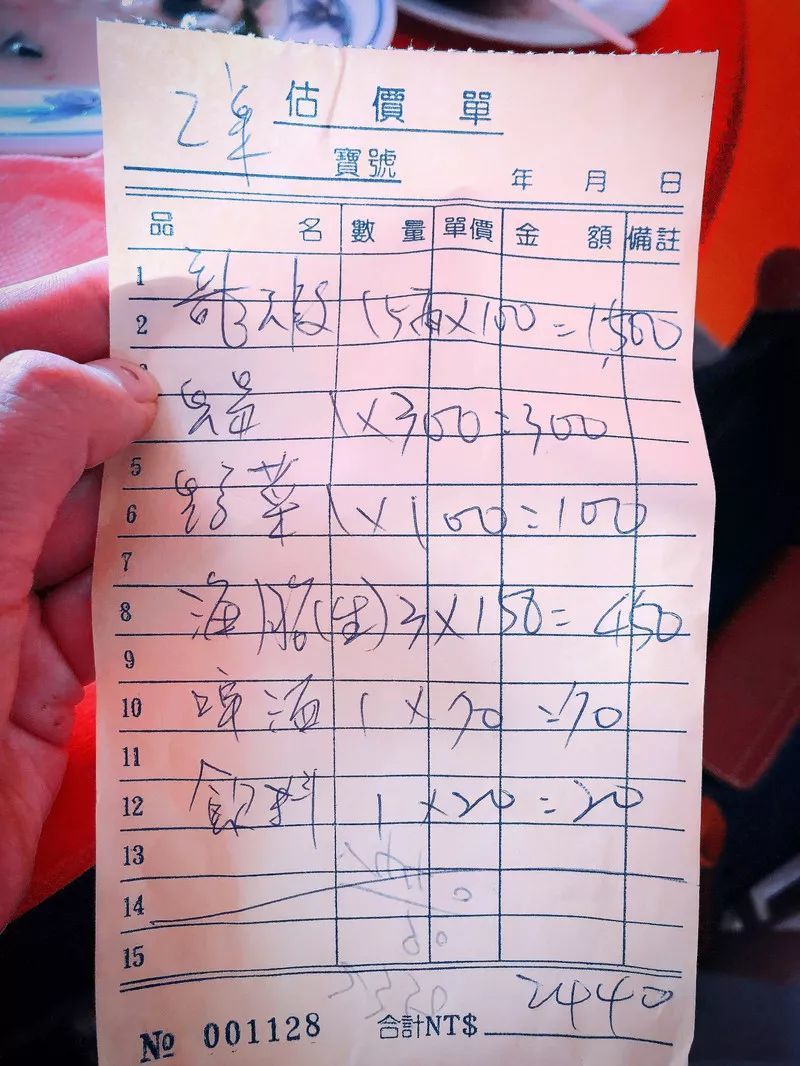 乙單 估價單
寶號 年 月 日
品名 數量 單價 金額 備註
1
2 龍蝦 15兩×100=1500
1×300=300
5
6 野菜 1×100=100
7
8 海膽(生) 3×150=450
9
10 啤酒 1×70=70
11
12 飲料 1×20=20
13
14
15
№ 001128 合計NT$ 2440